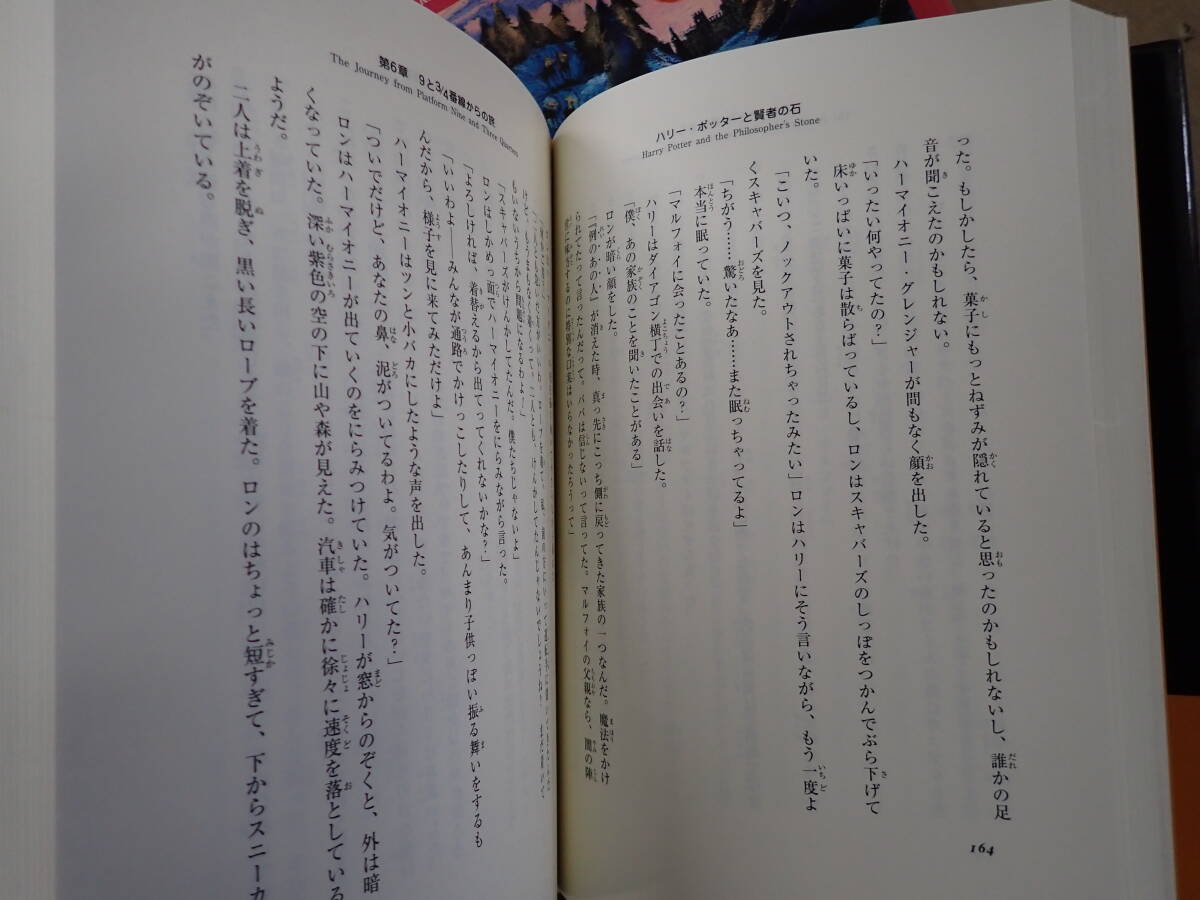 ハリー・ポッターと賢者の石
Harry Potter and the Philosopher's Stone
った。もしかしたら、菓子にもっとねずみが隠れていると思ったのかもしれないし、誰かの足
音が聞こえたのかもしれない。
ハーマイオニー・グレンジャーが間もなく顔を出した。
「いったい何やってたの？」
床いっぱいに菓子は散らばっているし、ロンはスキャバーズのしっぽをつかんでぶら下げて
いた。
「こいつ、ノックアウトされちゃったみたい」ロンはハリーにそう言いながら、もう一度よ
くスキャバーズを見た。
「ちがう……驚いたなあ……また眠っちゃってるよ」
本当に眠っていた。
「マルフォイに会ったことあるの？」
ハリーはダイアゴン横丁での出会いを話した。
「僕、あの家族のことを聞いたことがある」
ロンが暗い顔をした。
「『例のあの人』が消えた時、真っ先にこっち側に戻ってきた家族の一つなんだ。魔法をかけ
られてたって言ったんだって。パパは信じないって言ってた。マルフォイの父親なら、闇の陣
164
第6章 9と3/4番線からの旅
The Journey from Platform Nine and Three Quarters
「スキャバーズがけんかしてたんだ。僕たちじゃないよ」
ロンはしかめっ面でハーマイオニーをにらみながら言った。
「よろしければ、着替えるから出てってくれないかな？」
「いいわよ――みんなが通路でかけっこしたりして、あんまり子供っぽい振る舞いをするも
んだから、様子を見に来てみただけよ」
ハーマイオニーはツンと小バカにしたような声を出した。
「ついでだけど、あなたの鼻、泥がついてるわよ。気がついてた？」
ロンはハーマイオニーが出ていくのをにらみつけていた。ハリーが窓からのぞくと、外は暗
くなっていた。深い紫色の空の下に山や森が見えた。汽車は確かに徐々に速度を落としている
ようだ。
二人は上着を脱ぎ、黒い長いローブを着た。ロンのはちょっと短すぎて、下からスニーカ
がのぞいている。